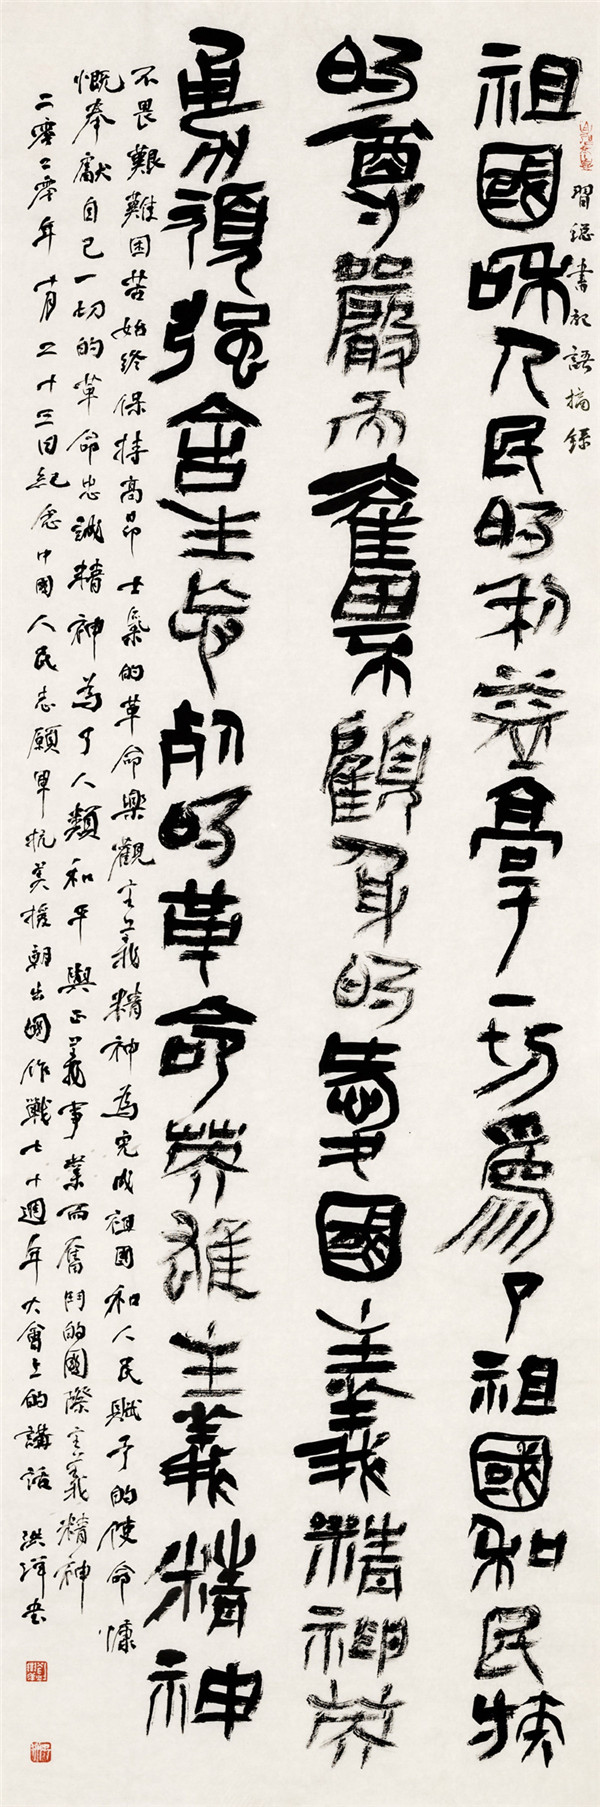 習總書記語摘錄
祖國和人民的利益高于一切為了祖國和民族
的尊嚴而奮不顧身的愛國主義精神英
勇頑強舍生忘死的革命英雄主義精神
不畏艱難困苦始終保持高昂士氣的革命樂觀主義精神為完成祖國和人民賦予的使命慷
慨奉獻自己一切的革命忠誠精神為了人類和平與正義事業而奮鬥的國際主義精神
二零二零年十月二十三日紀念中國人民志願軍抗美援朝出國作戰七十週年大會上的講話 洪 書